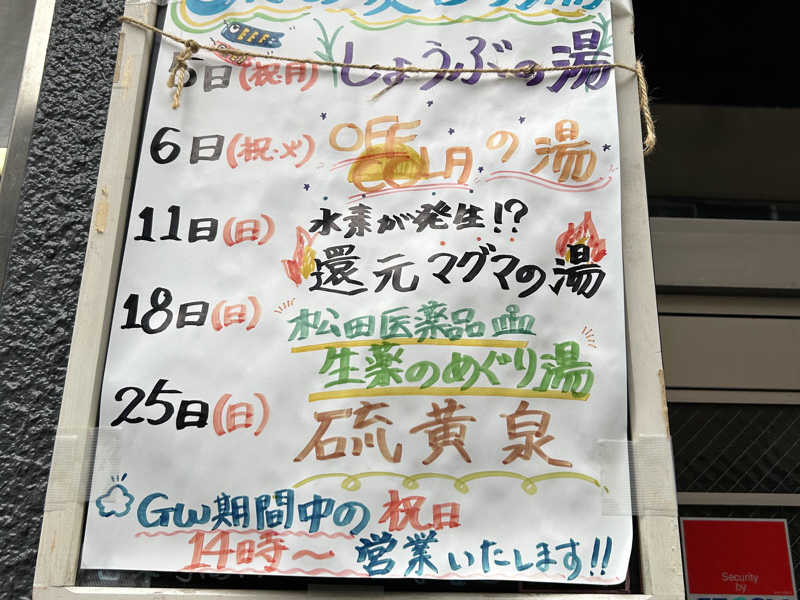 5日(祝・月) しょうぶの湯
6日(祝・火) OFF COLAの湯
11日(日) 水素が発生!?
還元マグマの湯
18日(日) 松田医薬品
生薬のめぐり湯
25日(日) 硫黄泉
GW期間中の祝日
14時〜営業いたします!!
Security
by